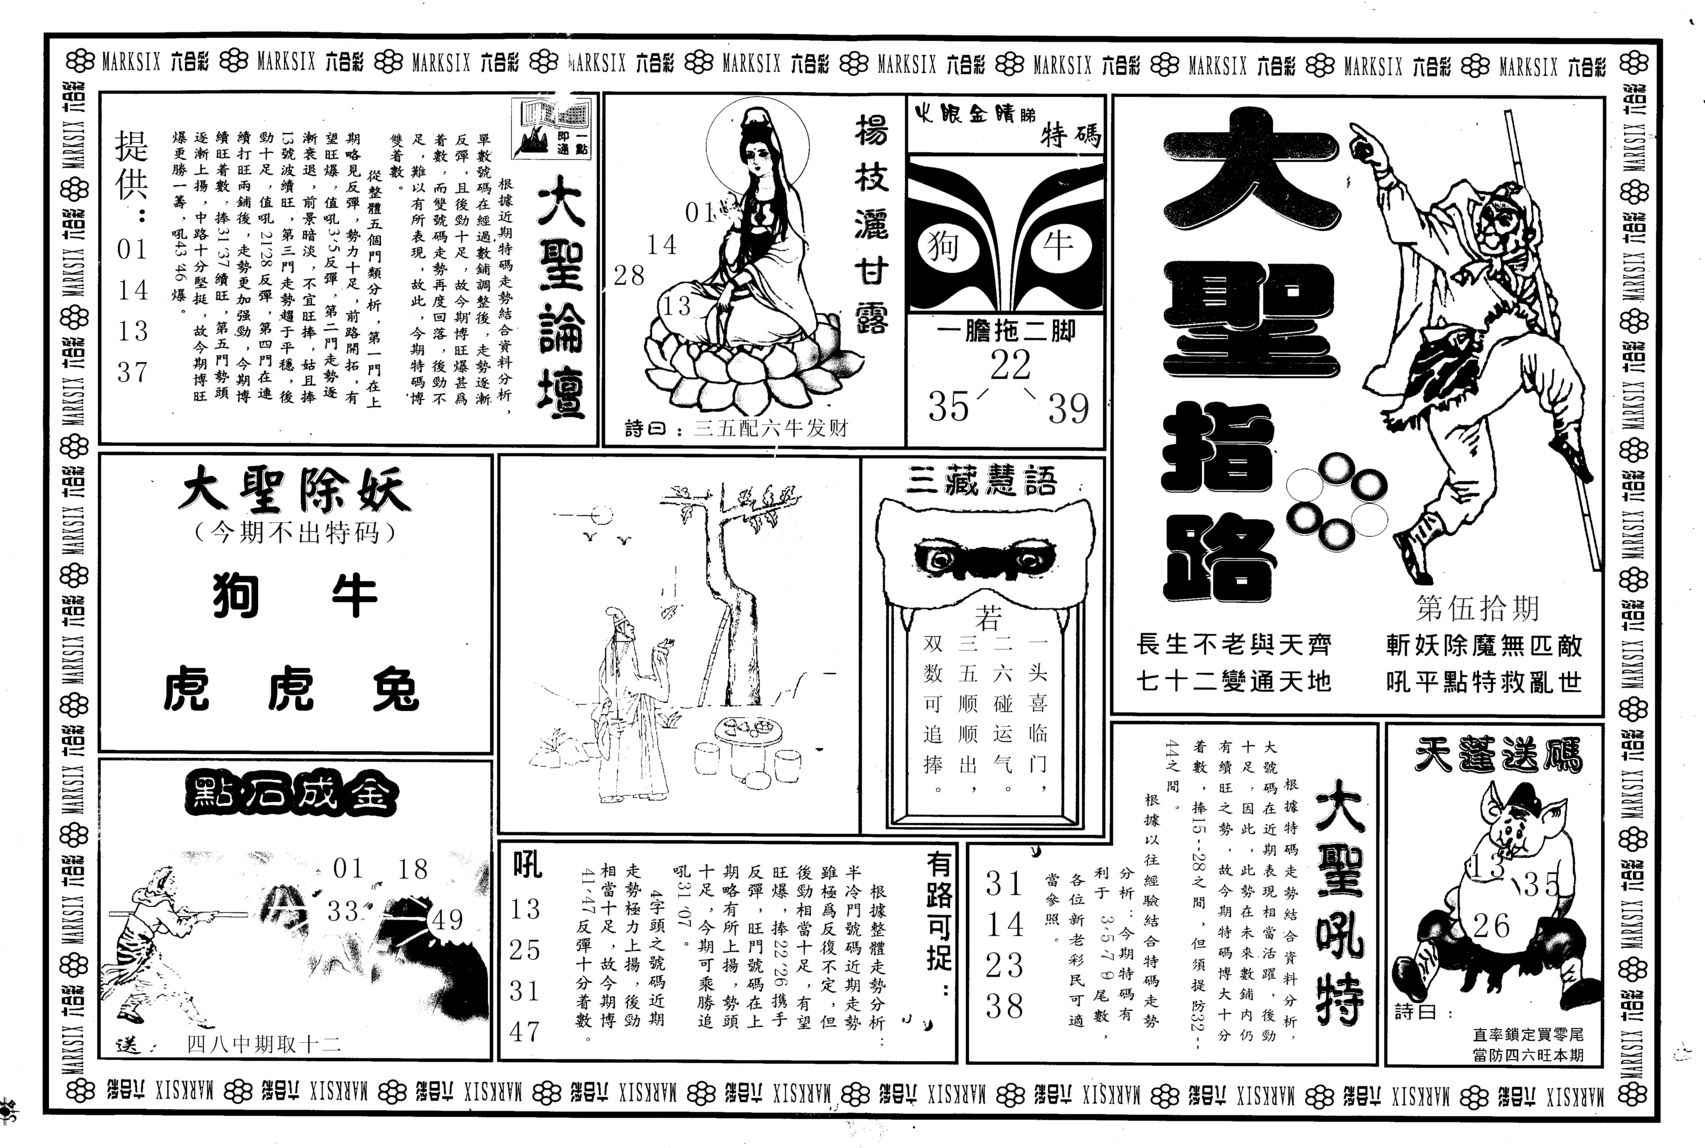 MARKSIX 六合彩 MARKSIX 六合彩 MARKSIX 六合彩 MARKSIX 六合彩 MARKSIX 六合彩 MARKSIX 六合彩 MARKSIX 六合彩 MARKSIX 六合彩 MARKSIX 六合彩 MARKSIX 六合彩
大聖指路
第伍拾期
長生不老與天齊
七十二變通天地
斬妖除魔無匹敵
吼平點特救亂世
火眼金睛睇
特碼
狗 牛
一膽拖二脚
22
35 39
楊枝灑甘露
01
14
28
13
詩曰：三五配六牛发财
一點即通
大聖論壇
根據近期特碼走勢結合資料分析，
單數號碼在經過數鋪調整後，走勢逐漸
反彈，且後勁十足，故今期博旺爆甚爲
着數，而雙號碼走勢再度回落，後勁不
足，難以有所表現，故此，今期特碼博
雙着數。
從整體五個門類分析，第一門在上
期略見反彈，勢力十足，前路開拓，有
望旺爆，值吼3·5反彈，第二門走勢逐
漸衰退，前景暗淡，不宜旺捧，姑且捧
13號波續旺，第三門走勢趨于平穩，後
勁十足，值吼21·28反彈，第四門在連
續打旺兩鋪後，走勢更加强勁，今期博
續旺着數，捧31·37續旺，第五門勢頭
逐漸上揚，中路十分堅挺，故今期博旺
爆更勝一籌，吼43·46爆。
提供：
01
14
13
37
大聖除妖
（今期不出特码）
狗 牛
虎 虎 兔
三藏慧語
若
一头喜临门，
二六碰运气。
三五顺顺出，
双数可追捧。
點石成金
01 18
33
49
送： 四八中期取十二
有路可捉：
根據整體走勢分析：
半冷門號碼近期走勢
雖極爲反復不定，但
後勁相當十足，有望
旺爆，捧22·26携手
反彈，旺門號碼在上
期略有所上揚，勢頭
十足，今期可乘勝追
吼31·07。
4字頭之號碼近期
走勢極力上揚，後勁
相當十足，故今期博
41·47反彈十分着數。
吼
13
25
31
47
大聖吼特
根據特碼走勢結合資料分析，
大號碼在近期表現相當活躍，後勁
十足，因此，此勢在未來數鋪内仍
有續旺之勢，故今期特碼博大十分
着數，捧15--28之間，但须提防32--
44之間。
根據以往經驗結合特碼走勢
分析：今期特碼有
利于 3·5·7·9尾數，
各位新老彩民可適
當參照。
31
14
23
38
天蓬送碼
13
35
26
詩曰：
直率鎖定買零尾
當防四六旺本期